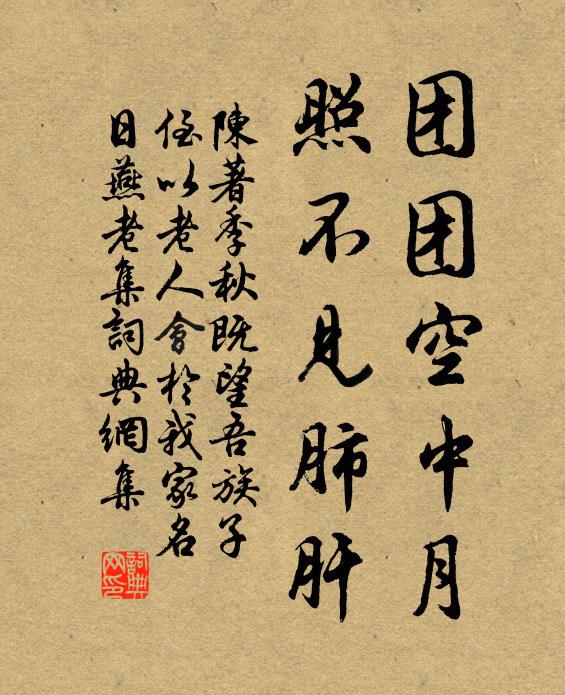 团团空中月
照不见肺肝
陳著季秋既望吾族子
侄以老人會於我家名
日燕老集詞典網集
詞典网印